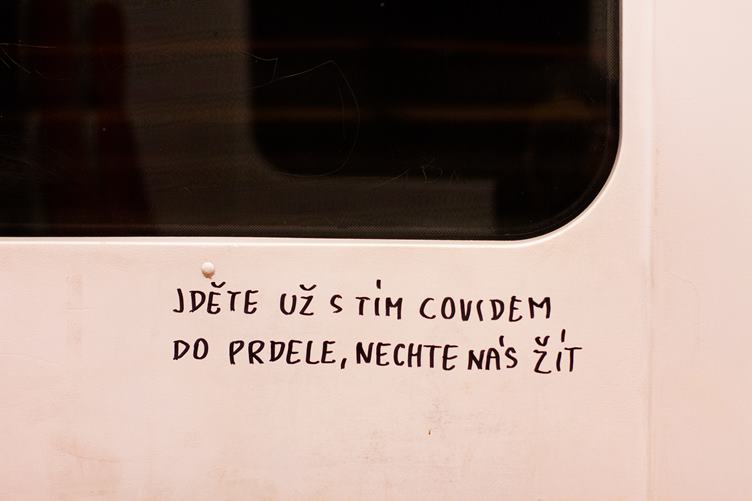 JDĚTE UŽ S TÍM COVIDEM
DO PRDELE, NECHTE NÁS ŽÍT